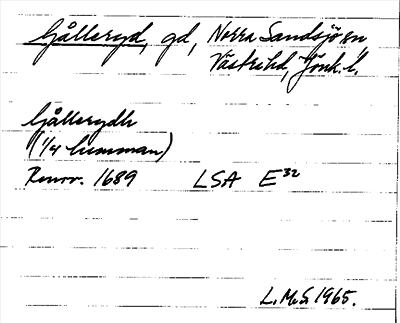 Gålleryd, gd, Norra Sandsjö sn
Västrihd, Jönk. l.
Gållerydh
(1/4 hemman)
Renov. 1689 LSA E³²
L.M.S 1965.